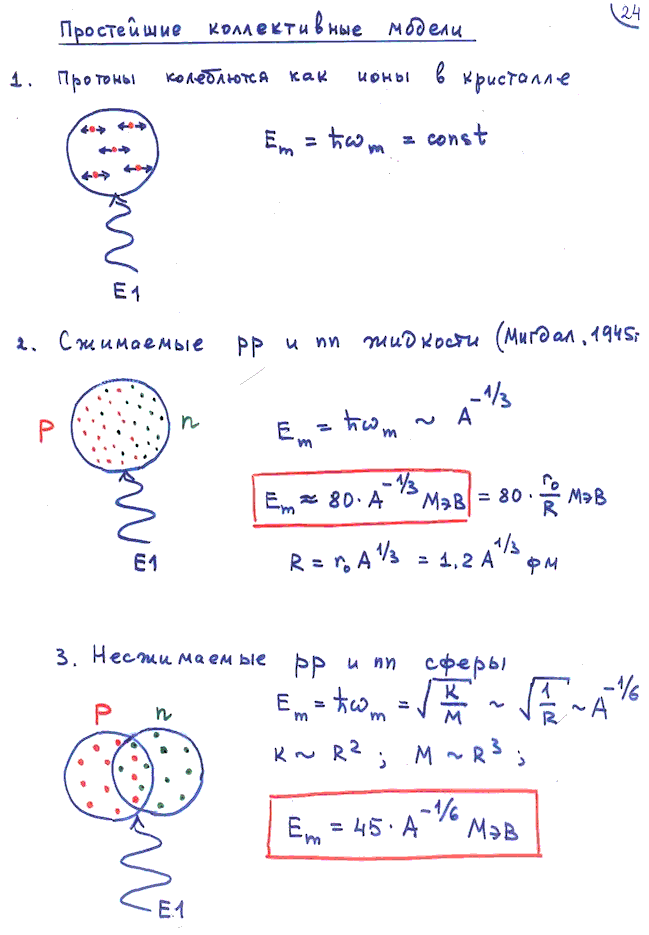 24
Простейшие коллективные модели
1. Протоны колеблются как ионы в кристалле
E_m = ħω_m = const
E1
2. Сжимаемые pp и nn жидкости (Мигдал, 1945г
p n
E_m = ħω_m ~ A^{-1/3}
E_m ≈ 80·A^{-1/3} МэВ = 80·r₀/R МэВ
E1
R = r₀ A^{1/3} = 1.2 A^{1/3} фм
3. Несжимаемые pp и nn сферы
p n
E_m = ħω_m = √(K/M) ~ √(1/R) ~ A^{-1/6}
K ~ R² ; M ~ R³ ;
E_m = 45·A^{-1/6} МэВ
E1